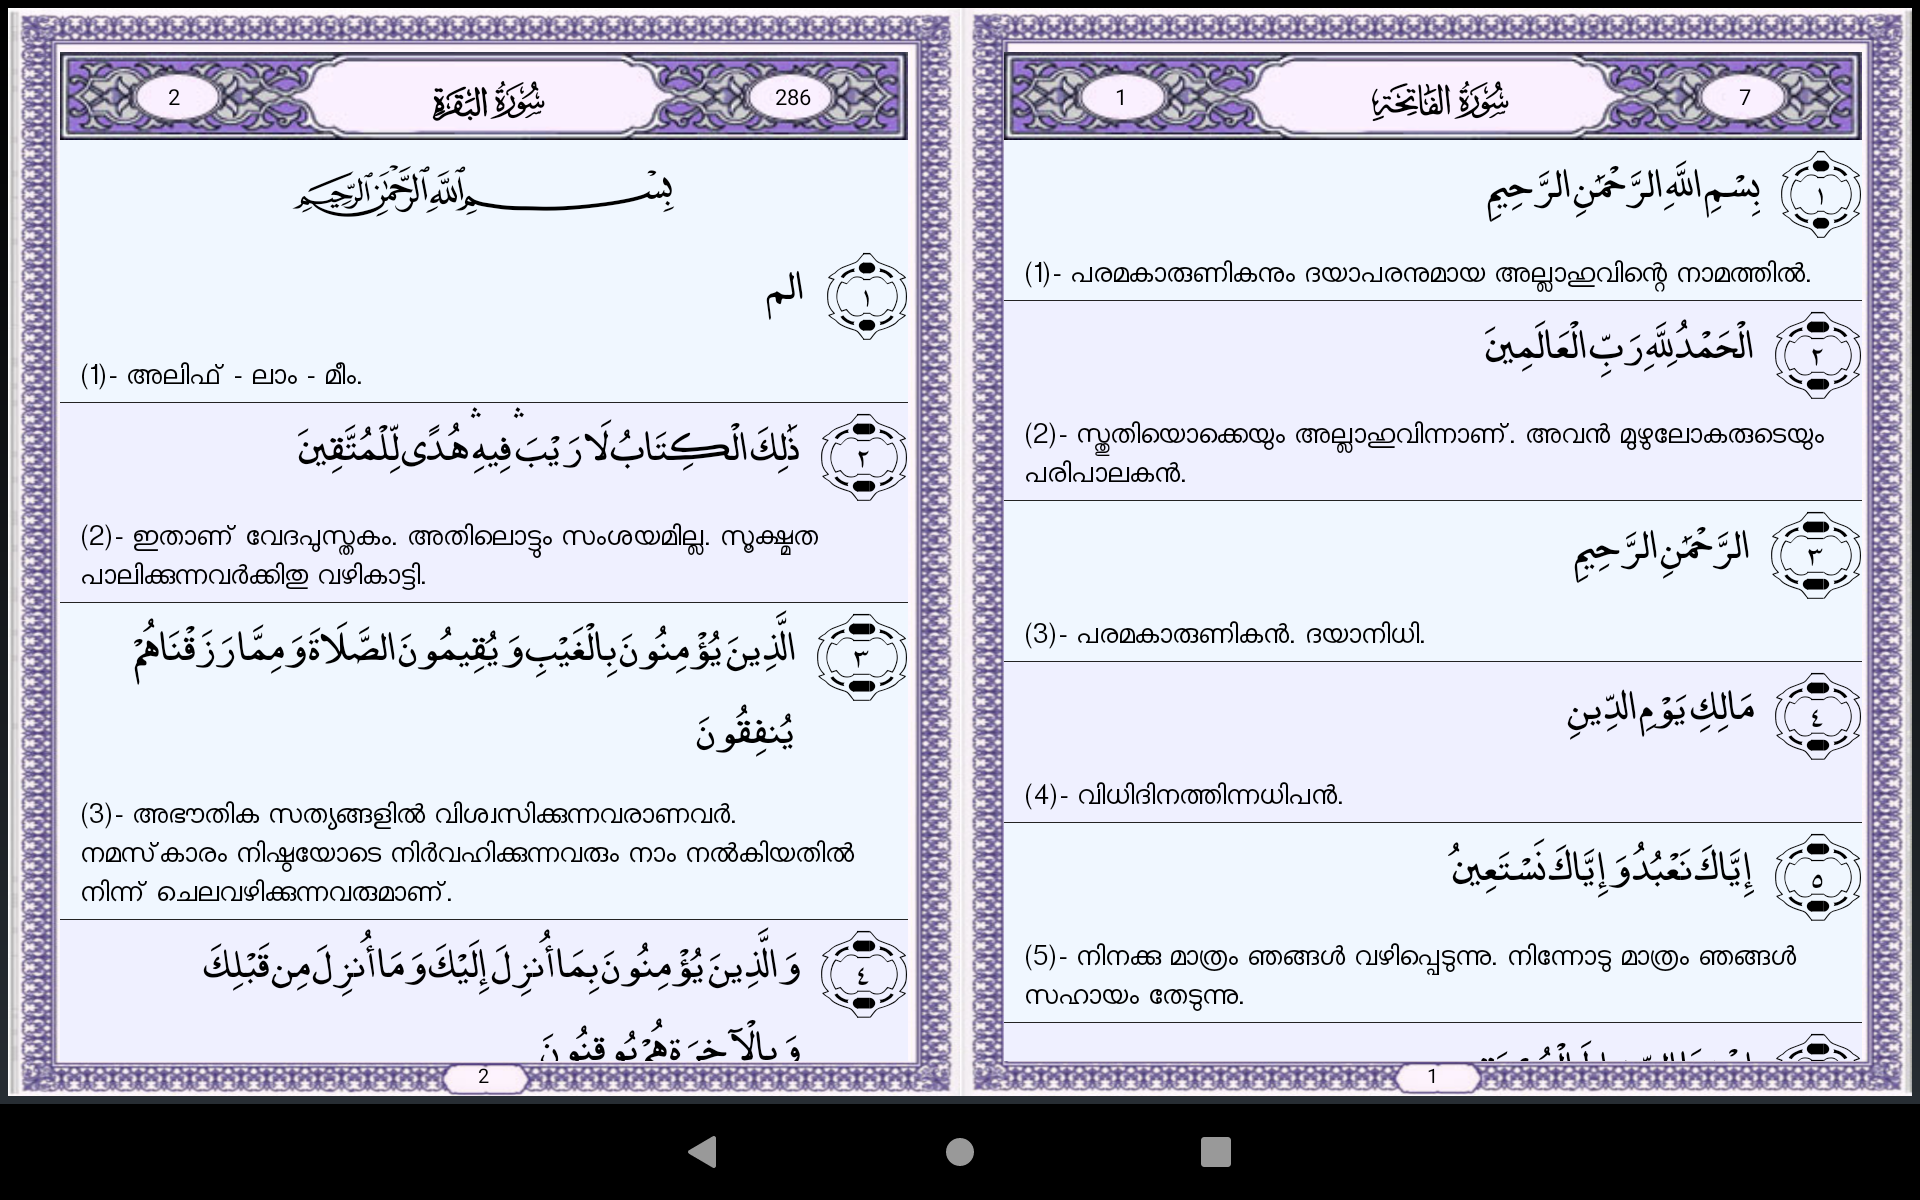 1
سُورَةُ الفَاتِحَةِ
7
بِسْمِ اللَّهِ الرَّحْمَٰنِ الرَّحِيمِ ١
(1)- പരമകാരുണികനും ദയാപരനുമായ അല്ലാഹുവിന്റെ നാമത്തില്‍.
الْحَمْدُ لِلَّهِ رَبِّ الْعَالَمِينَ ٢
(2)- സ്തുതിയൊക്കെയും അല്ലാഹുവിന്നാണ്. അവന്‍ മുഴുലോകരുടെയും
പരിപാലകന്‍.
الرَّحْمَٰنِ الرَّحِيمِ ٣
(3)- പരമകാരുണികന്‍. ദയാനിധി.
مَالِكِ يَوْمِ الدِّينِ ٤
(4)- വിധിദിനത്തിന്നധിപന്‍.
إِيَّاكَ نَعْبُدُ وَإِيَّاكَ نَسْتَعِينُ ٥
(5)- നിനക്കു മാത്രം ഞങ്ങള്‍ വഴിപ്പെടുന്നു. നിന്നോടു മാത്രം ഞങ്ങള്‍
സഹായം തേടുന്നു.
1
2
سُورَةُ البَقَرَةِ
286
بِسْمِ ٱللَّهِ ٱلرَّحْمَٰنِ ٱلرَّحِيمِ
الم ١
(1)- അലിഫ് - ലാം - മീം.
ذَٰلِكَ الْكِتَابُ لَا رَيْبَ ۛ فِيهِ ۛ هُدًى لِّلْمُتَّقِينَ ٢
(2)- ഇതാണ് വേദപുസ്തകം. അതിലൊട്ടും സംശയമില്ല. സൂക്ഷ്മത
പാലിക്കുന്നവര്‍ക്കിതു വഴികാട്ടി.
الَّذِينَ يُؤْمِنُونَ بِالْغَيْبِ وَيُقِيمُونَ الصَّلَاةَ وَمِمَّا رَزَقْنَاهُمْ ٣
يُنفِقُونَ
(3)- അഭൗതിക സത്യങ്ങളില്‍ വിശ്വസിക്കുന്നവരാണവര്‍.
നമസ്കാരം നിഷ്ഠയോടെ നിര്‍വഹിക്കുന്നവരും നാം നല്‍കിയതില്‍
നിന്ന് ചെലവഴിക്കുന്നവരുമാണ്.
وَالَّذِينَ يُؤْمِنُونَ بِمَا أُنزِلَ إِلَيْكَ وَمَا أُنزِلَ مِن قَبْلِكَ ٤
وَبِالْآخِرَةِ هُمْ يُوقِنُونَ
2